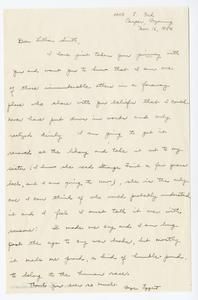 Casper, Wyoming
Nov. 16, 1954
Dear Lillian Smith,
I have just taken your journey with
you and want you to know that I am one
of those innumerable others in a faraway
place who share with you beliefs that I could
have put down in words and only
realized dimly. I am going to get it
renewed at the library and take it out to my
sister (I know she read Strange Fruit a few years
back, and I am going to, now), she is the only
one I can think of who would probably understand
it and I feel I must talk it over with
someone. It made me cry and I am long
past the age to cry over books, but mostly
it made me proud, a kind of humble proud,
to belong to the human race.
Thank you ever so much.